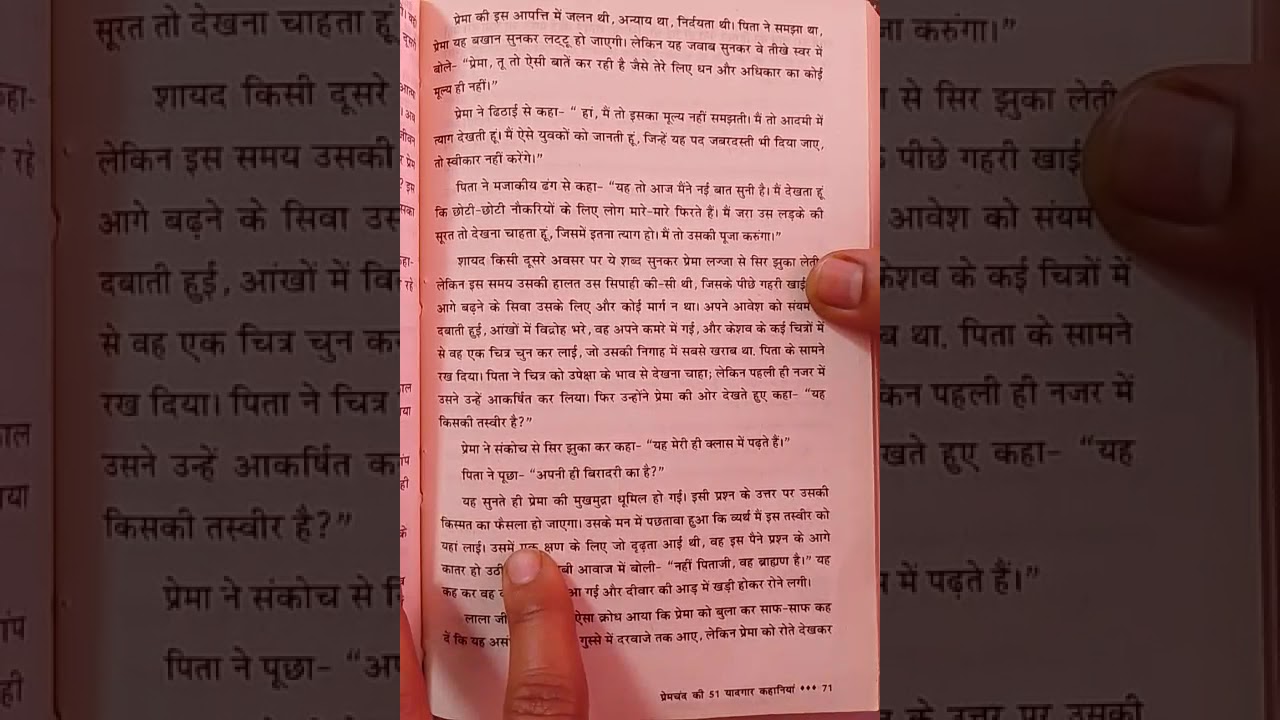 प्रेमा की इस आपत्ति में जलन थी, अन्याय था, निर्दयता थी। पिता ने समझा था,
प्रेमा यह बखान सुनकर लट्टू हो जाएगी। लेकिन यह जवाब सुनकर वे तीखे स्वर में
बोले- “प्रेमा, तू तो ऐसी बातें कर रही है जैसे तेरे लिए धन और अधिकार का कोई
मूल्य ही नहीं।”
प्रेमा ने ढिठाई से कहा- “ हां, मैं तो इसका मूल्य नहीं समझती। मैं तो आदमी में
त्याग देखती हूं। मैं ऐसे युवकों को जानती हूं, जिन्हें यह पद जबरदस्ती भी दिया जाए,
तो स्वीकार नहीं करेंगे।”
पिता ने मजाकीय ढंग से कहा- “यह तो आज मैंने नई बात सुनी है। मैं देखता हूं
कि छोटी-छोटी नौकरियों के लिए लोग मारे-मारे फिरते हैं। मैं जरा उस लड़के की
सूरत तो देखना चाहता हूं, जिसमें इतना त्याग हो। मैं तो उसकी पूजा करुंगा।”
शायद किसी दूसरे अवसर पर ये शब्द सुनकर प्रेमा लज्जा से सिर झुका लेती
लेकिन इस समय उसकी हालत उस सिपाही की-सी थी, जिसके पीछे गहरी खाई
आगे बढ़ने के सिवा उसके लिए और कोई मार्ग न था। अपने आवेश को संयम
दबाती हुई, आंखों में विद्रोह भरे, वह अपने कमरे में गई, और केशव के कई चित्रों में
से वह एक चित्र चुन कर लाई, जो उसकी निगाह में सबसे खराब था. पिता के सामने
रख दिया। पिता ने चित्र को उपेक्षा के भाव से देखना चाहा; लेकिन पहली ही नजर में
उसने उन्हें आकर्षित कर लिया। फिर उन्होंने प्रेमा की ओर देखते हुए कहा- “यह
किसकी तस्वीर है?”
प्रेमा ने संकोच से सिर झुका कर कहा- “यह मेरी ही क्लास में पढ़ते हैं।”
पिता ने पूछा- “अपनी ही बिरादरी का है?”
यह सुनते ही प्रेमा की मुखमुद्रा धूमिल हो गई। इसी प्रश्न के उत्तर पर उसकी
किस्मत का फैसला हो जाएगा। उसके मन में पछतावा हुआ कि व्यर्थ मैं इस तस्वीर को
यहां लाई। उसमें एक क्षण के लिए जो दृढ़ता आई थी, वह इस पैने प्रश्न के आगे
कातर हो उठी आवाज में बोली- “नहीं पिताजी, वह ब्राह्मण है।” यह
कह कर वह आ गई और दीवार की आड़ में खड़ी होकर रोने लगी।
लाला जी ऐसा क्रोध आया कि प्रेमा को बुला कर साफ-साफ कह
दें कि यह गुस्से में दरवाजे तक आए, लेकिन प्रेमा को रोते देखकर
प्रेमचंद की 51 यादगार कहानियां ♦♦♦ 71